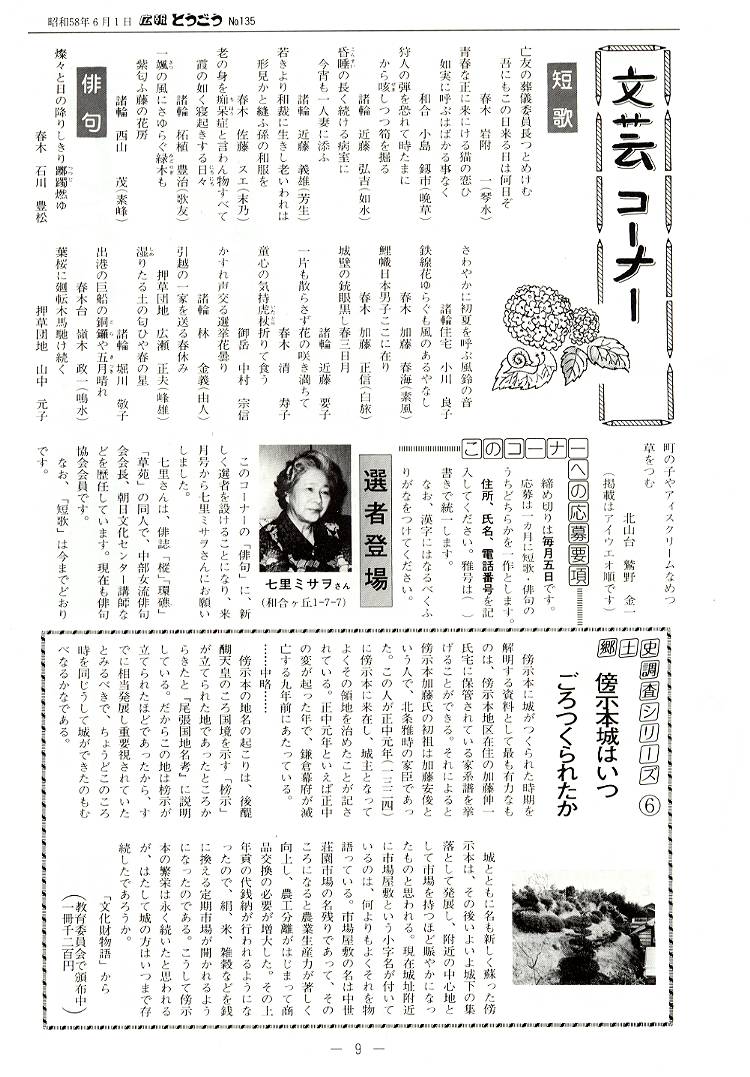 昭和58年6月1日 広報とうごう No135
文芸コーナー
短歌
亡友の葬儀委員長つとめけむ
吾にもこの日来る日は何日ぞ
春木 岩附 一(琴水)
青春な正に来にける猫の恋ひ
如実に呼ぶはばかる事なく
和合 小島 釼市(晩草)
狩人の弾を恐れて時たまに
から咳しつつ筍を掘る
諸輪 近藤 弘吉(如水)
昏睡の長く続ける病室に
今宵も一人妻に添ふ
諸輪 近藤 義雄(芳生)
若きより和裁に生きし老いわれは
形見かと縫ふ孫の和服を
春木 佐藤 スエ(末乃)
老の身を痴呆症と言わん物すべて
霞の如く寝起きする日々
諸輪 柘植 豊治(歌友)
一颯の風にさゆらぐ緑木も
紫匂ふ藤の花房
諸輪 西山 茂(素峰)
俳句
燦々と日の降りしきり躑躅燃ゆ
春木 石川 豊松
さわやかに初夏を呼ぶ風鈴の音
諸輪住宅 小川 良子
鉄線花ゆらぐも風のあるやなし
春木 加藤 春海(素風)
鯉幟日本男子ここに在り
春木 加藤 正信(白旅)
城壁の銃眼黒し春三日月
諸輪 近藤 要子
一片も散らさず花の咲き満ちて
春木 清 寿子
童心の気持虎杖折りて食う
御岳 中村 宗信
かすれ声交る選挙花曇り
諸輪 林 金義(由人)
引越の一家を送る春休み
押草団地 広瀬 正夫(峰雄)
湿りたる土の匂ひや春の星
諸輪 堀川 敬子
出港の巨船の銅鑼や五月晴れ
春木台 嶺木 政一(鳴水)
葉桜に廻転木馬馳け続く
押草団地 山中 元子
町の子やアイスクリームなめつ
草をつむ
北山台 鷲野 金一
(掲載はアイウエオ順です)
このコーナーへの応募要項
締め切りは毎月五日です。
応募は一ヵ月に短歌・俳句の
うちどちらかを一作とします。
住所、氏名、電話番号を記
入してください。雅号は( )
書きで統一します。
なお、漢字にはなるべくふ
りがなをつけてください。
選者登場
七里ミサヲさん
(和合ヶ丘1-7-7)
このコーナーの「俳句」に、新
しく選者を設けることになり、来
月号から七里ミサヲさんにお願い
しました。
七里さんは、俳誌「樅」「環礁」
「草苑」の同人で、中部女流俳句
会会長、朝日文化センター講師な
どを歴任しています。現在も俳句
協会会員です。
なお、「短歌」は今までどおり
です。
郷土史調査シリーズ⑥
傍示本城はいつ
ごろつくられたか
傍示本に城がつくられた時期を
解明する資料として最も有力なも
のは、傍示本地区在住の加藤伸一
氏宅に保管されている家系譜を挙
げることができる。それによると
傍示本加藤氏の初祖は加藤安俊と
いう人で、北条雅時の家臣であっ
た。この人が正中元年(一三二四)
に傍示本に来在し、城主となって
よくその領地を治めたことが記さ
れている。正中元年といえば正中
の変が起った年で、鎌倉幕府が滅
亡する九年前にあたっている。
……中略……
傍示本の地名の起こりは、後醍
醐天皇のころ国境を示す「傍示」
が立てられた地であったところか
らきたと、「尾張国地名考」に説明
している。だからこの地は傍示が
立てられたほどであったから、す
でに相当発展し重要視されていた
とみるべきで、ちょうどこのころ
時を同じうして城ができたのもむ
べなるかなである。
城とともに名も新しく蘇った傍
示本は、その後いよいよ城下の集
落として発展し、附近の中心地と
して市場を持つほど賑やかになっ
たものと思われる。現在城址附近
に市場屋敷という小字名が付いて
いるのは、何よりもよくそれを物
語っている。市場屋敷の名は中世
荘園市場の名残りであって、その
ころになると農業生産力が著しく
向上し、農工分離がはじまって商
品交換の必要が増大した。その上
年貢の代銭納が行われるようにな
ったので、絹、米、雑穀などを銭
に換える定期市場が開かれるよう
になったのである。こうして傍示
本の繁栄は永く続いたと思われる
が、はたして城の方はいつまで存
続したであろうか。
「文化財物語」から
(教育委員会で頒布中
一冊千二百円)
— 9 —